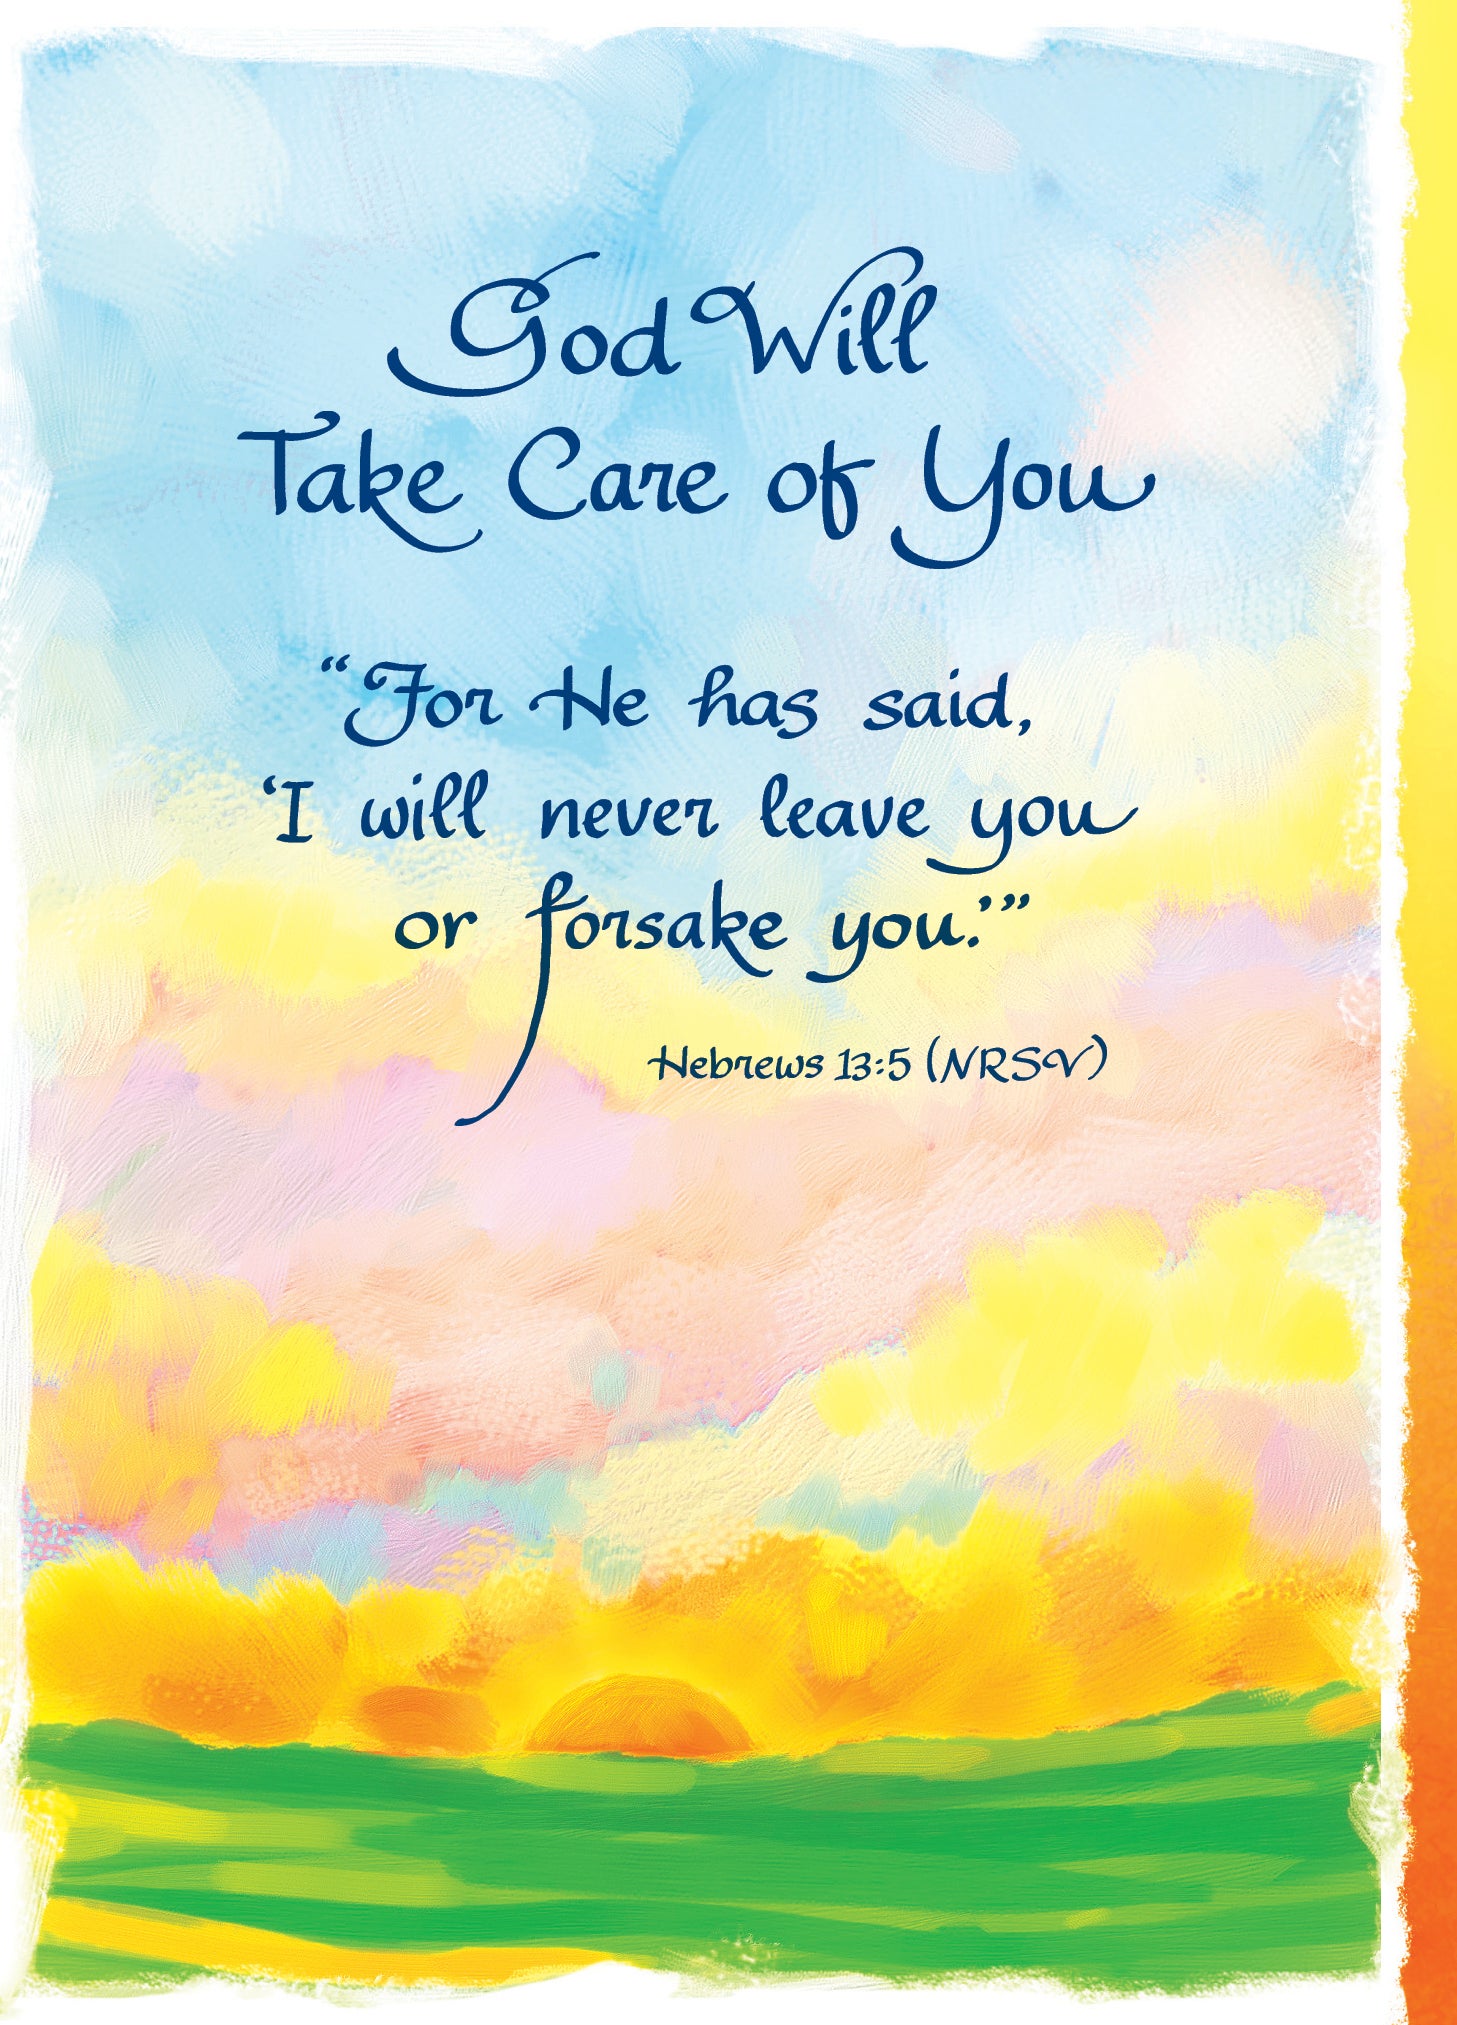 God Will
Take Care of You
“For He has said,
‘I will never leave you
or forsake you.’”
Hebrews 13:5 (NRSV)